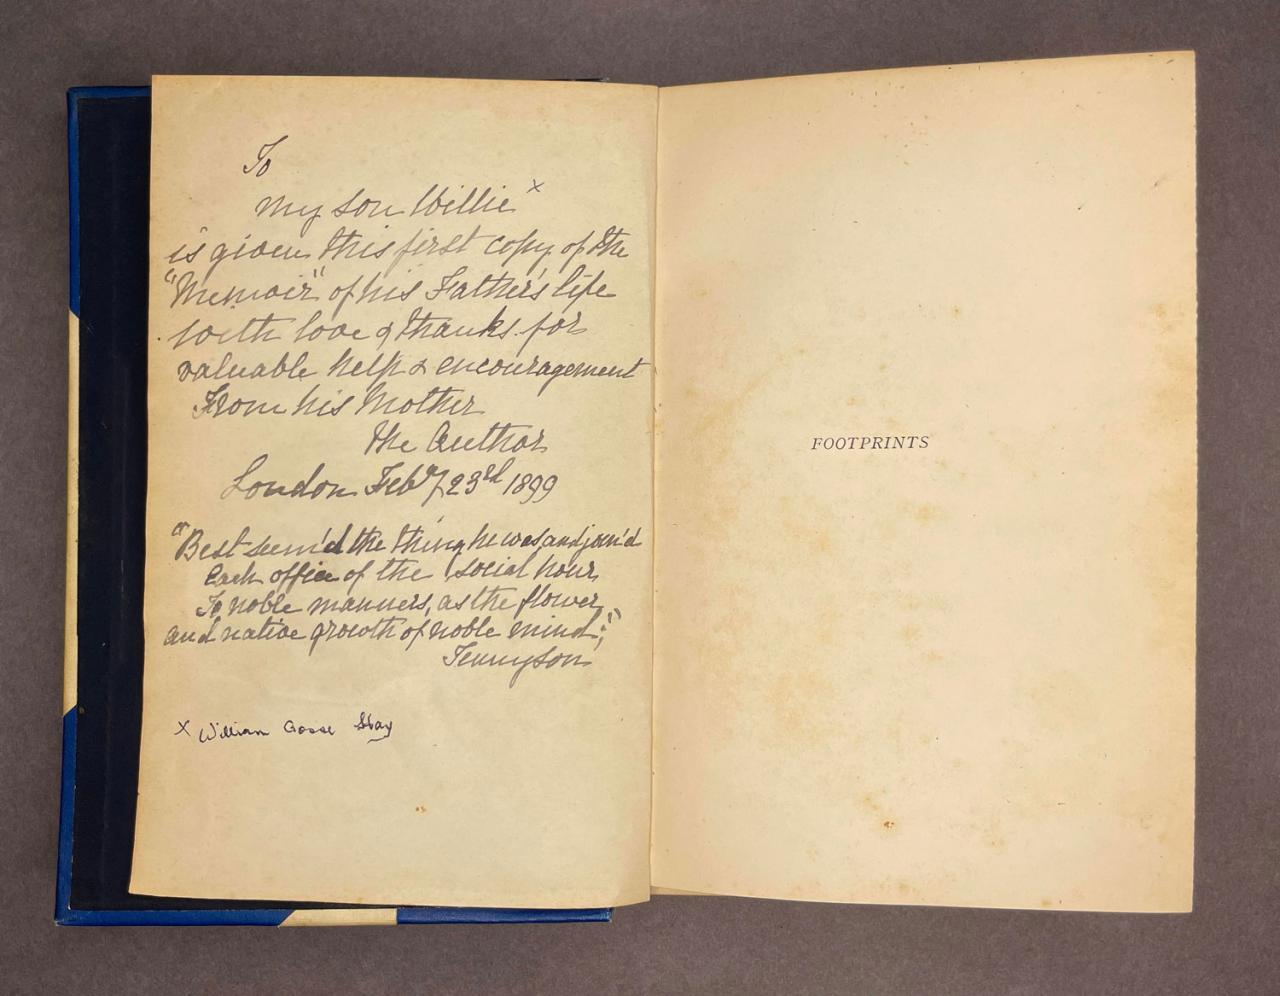 To
my son Willie x
is given this first copy of the
"Memoir" of his Father's life
with love & thanks for
valuable help & encouragement
From his Mother
the Author
London Feby 23rd 1899
"Best seem'd the thing he was and join'd
Each office of the social hour
To noble manners, as the flower
and native growth of noble mind;"
Tennyson
x William Gosse Hay
FOOTPRINTS